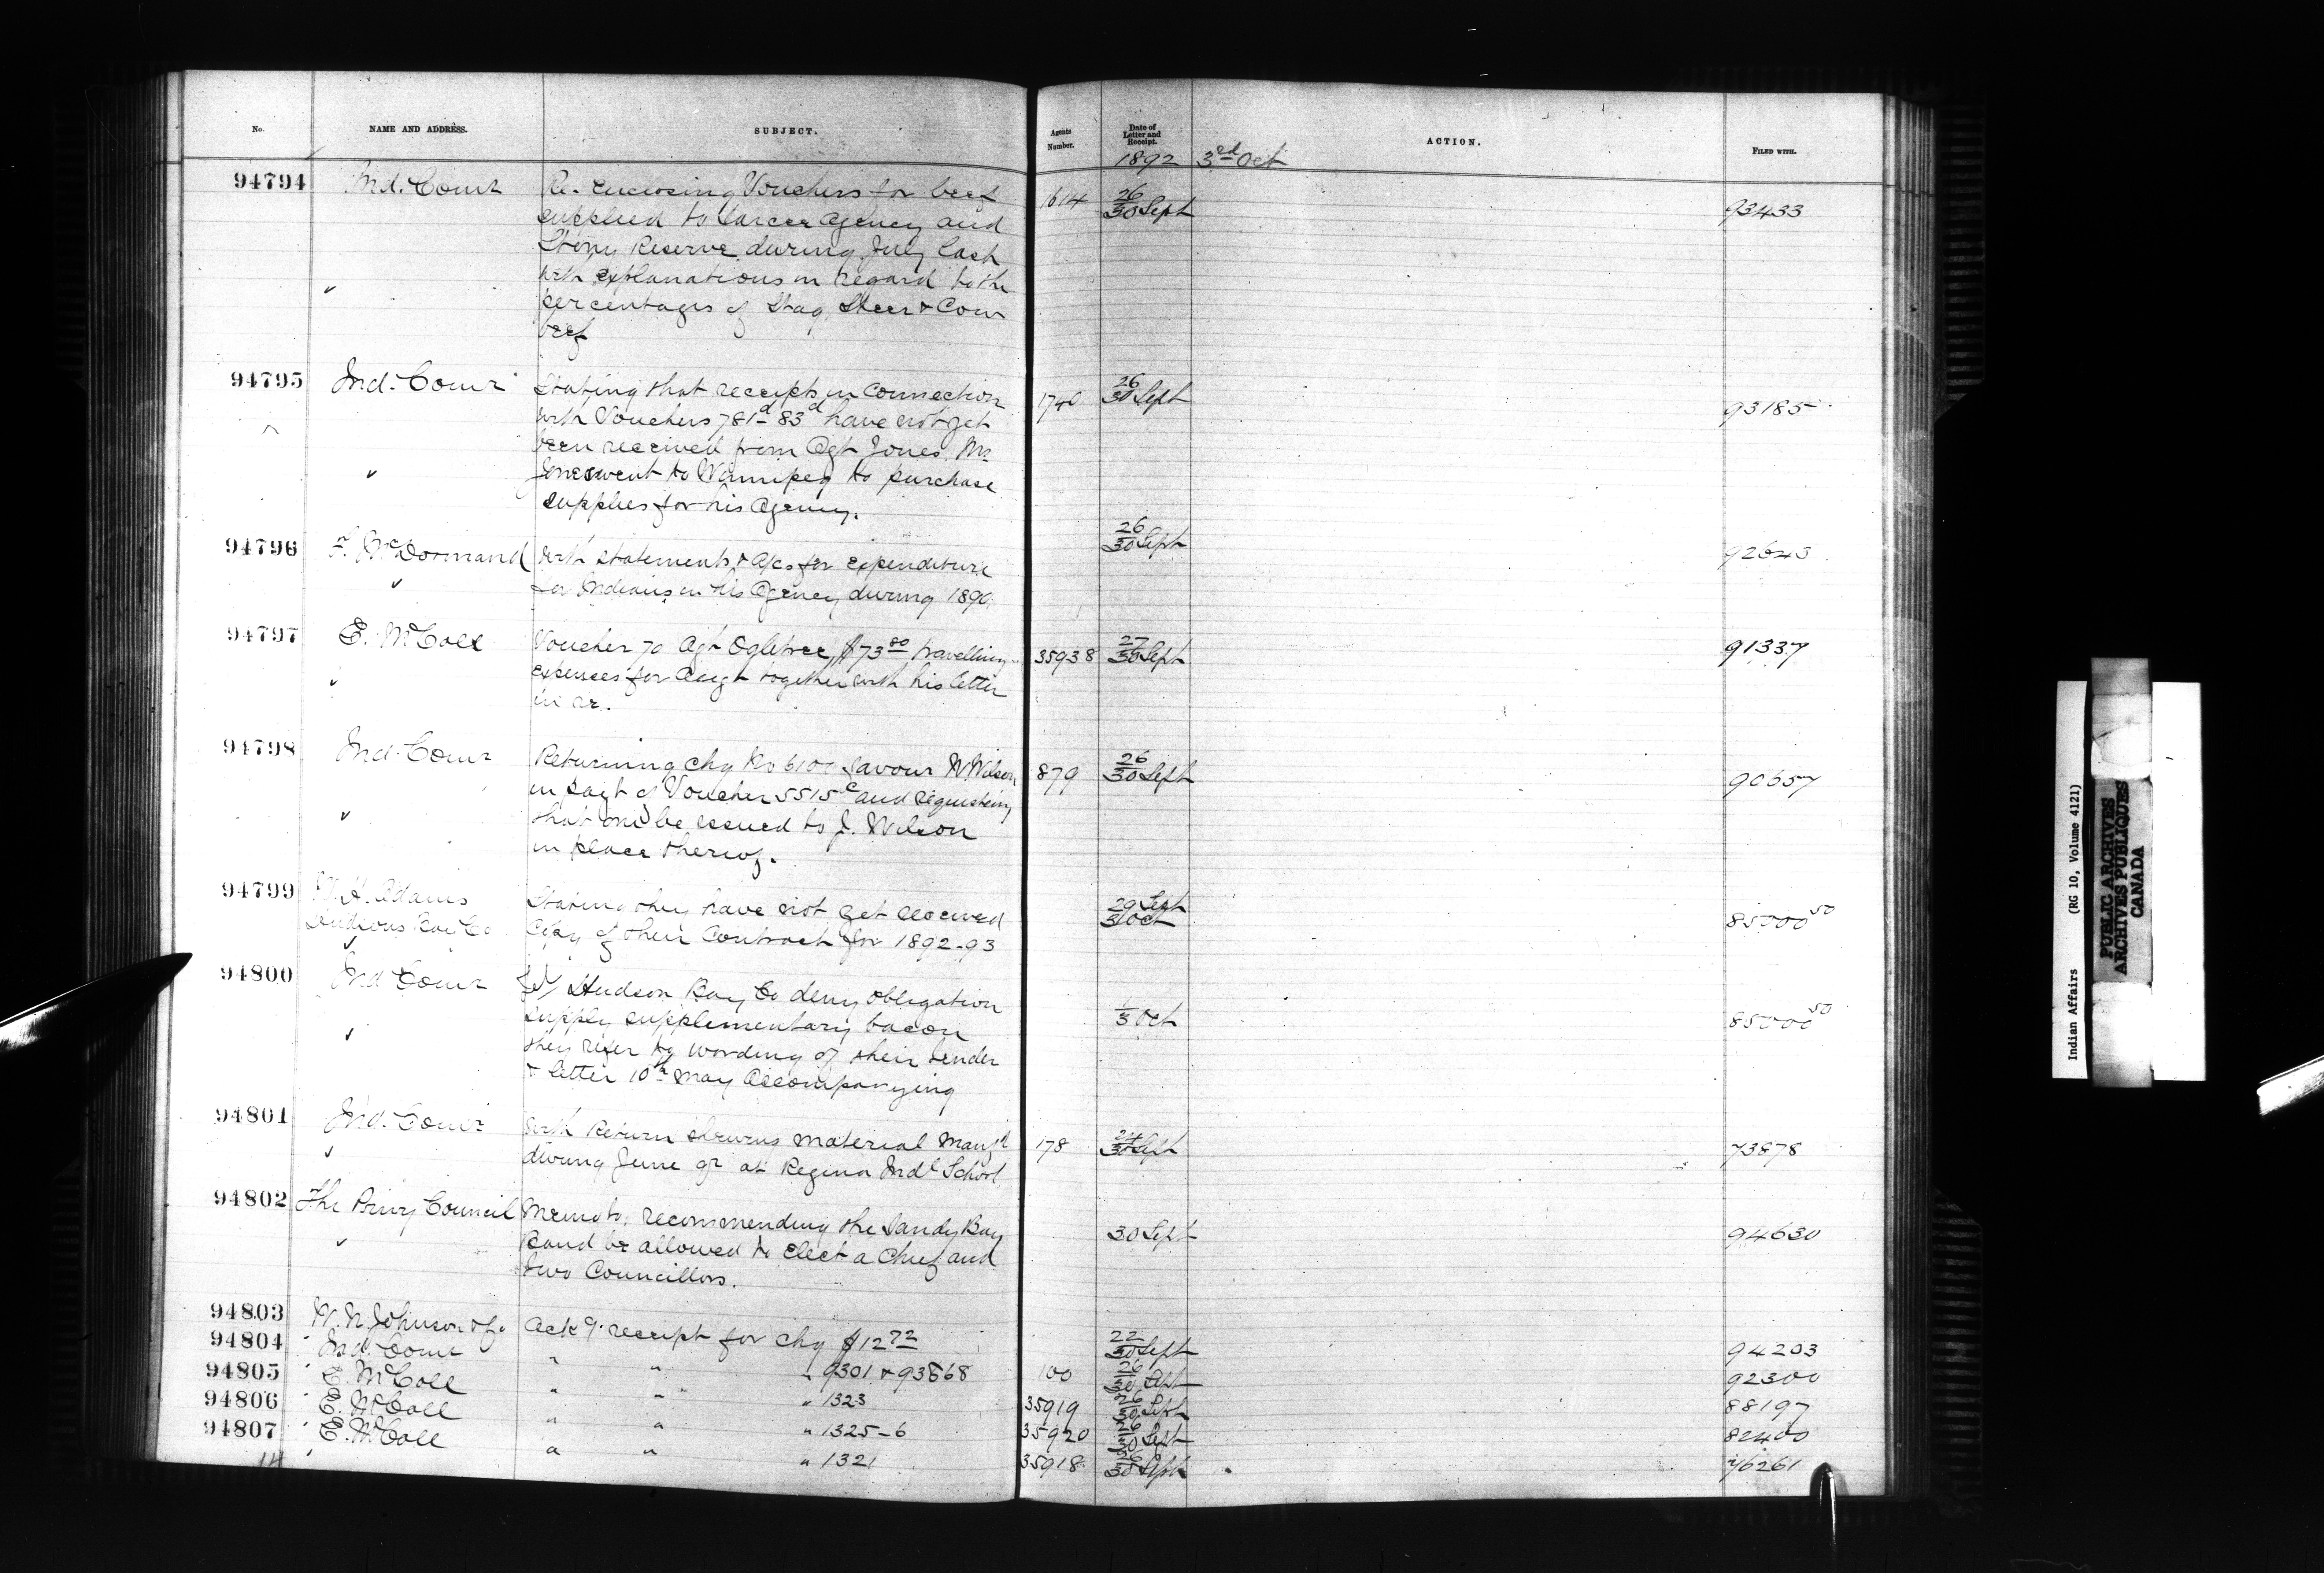 No.
NAME AND ADDRESS.
SUBJECT.
Agents Number.
Date of Letter and Receipt.
ACTION.
FILED WITH.
1892
3rd Oct
94794
Ind. Comr
Re-enclosing Vouchers for beef
supplied to Sarcee Agency and
Stony Reserve during July last
with explanations in regard to the
percentages of Stag, Steer & Cow
beef
1614
26
30 Sept
93433
94795
Ind. Comr
Stating that receipts in connection
with Vouchers 781d-83d have not yet
been received from Agt Jones. Mr.
Jones went to Winnipeg to purchase
supplies for his Agency.
1740
26
30 Sept
93185
94796
F. McDormand
with statements & a/cs for expenditure
for Indians in his Agency during 1890.
26
30 Sept
94797
E. McColl
Voucher 70 Agt Ogletree, $73 80 travelling
expenses for Augt together with his letter
in re.
35938
27
30 Sept
91337
94798
Ind. Comr
Returning chq No favour W. Wilson
in payt of Voucher 5515c and requesting
that one be issued to J. Wilson
in place thereof.
879
26
30 Sept
90657
94799
Adams
Hudsons Bay Co
Stating they have not yet received
Copy of their Contract for 1892-93
29 Sept
3 Oct
85000 50
94800
Ind Comr
Hudson Bay Co deny obligation
supply supplementary bacon
they refer to wording of their tender
& letter 10th May accompanying
1
3 Oct
85000 50
94801
Ind. Comr
with Return shewing material manfd
during June qr at Regina Indl School.
178
30 Sept
73878
94802
The Privy Council
Memo to, recommending the Sandy Bay
Band be allowed to Elect a Chief and
two Councillors.
30 Sept
94630
94803
W. N. Johnson & Co
Ackg receipt for chq $12 72
22
30 Sept
94203
94804
Ind. Comr
" " " 9301 & 93868
100
26
30 Sept
92300
94805
E. McColl
" " " 1323
35919
26
30 Sept
88197
94806
E. McColl
" " " 1325-6
35920
26
30 Sept
82400
94807
E. McColl
" " " 1321
35918
26
30 Sept
76261
14
Indian Affairs (RG 10, Volume 4121)
PUBLIC ARCHIVES
ARCHIVES PUBLIQUES
CANADA